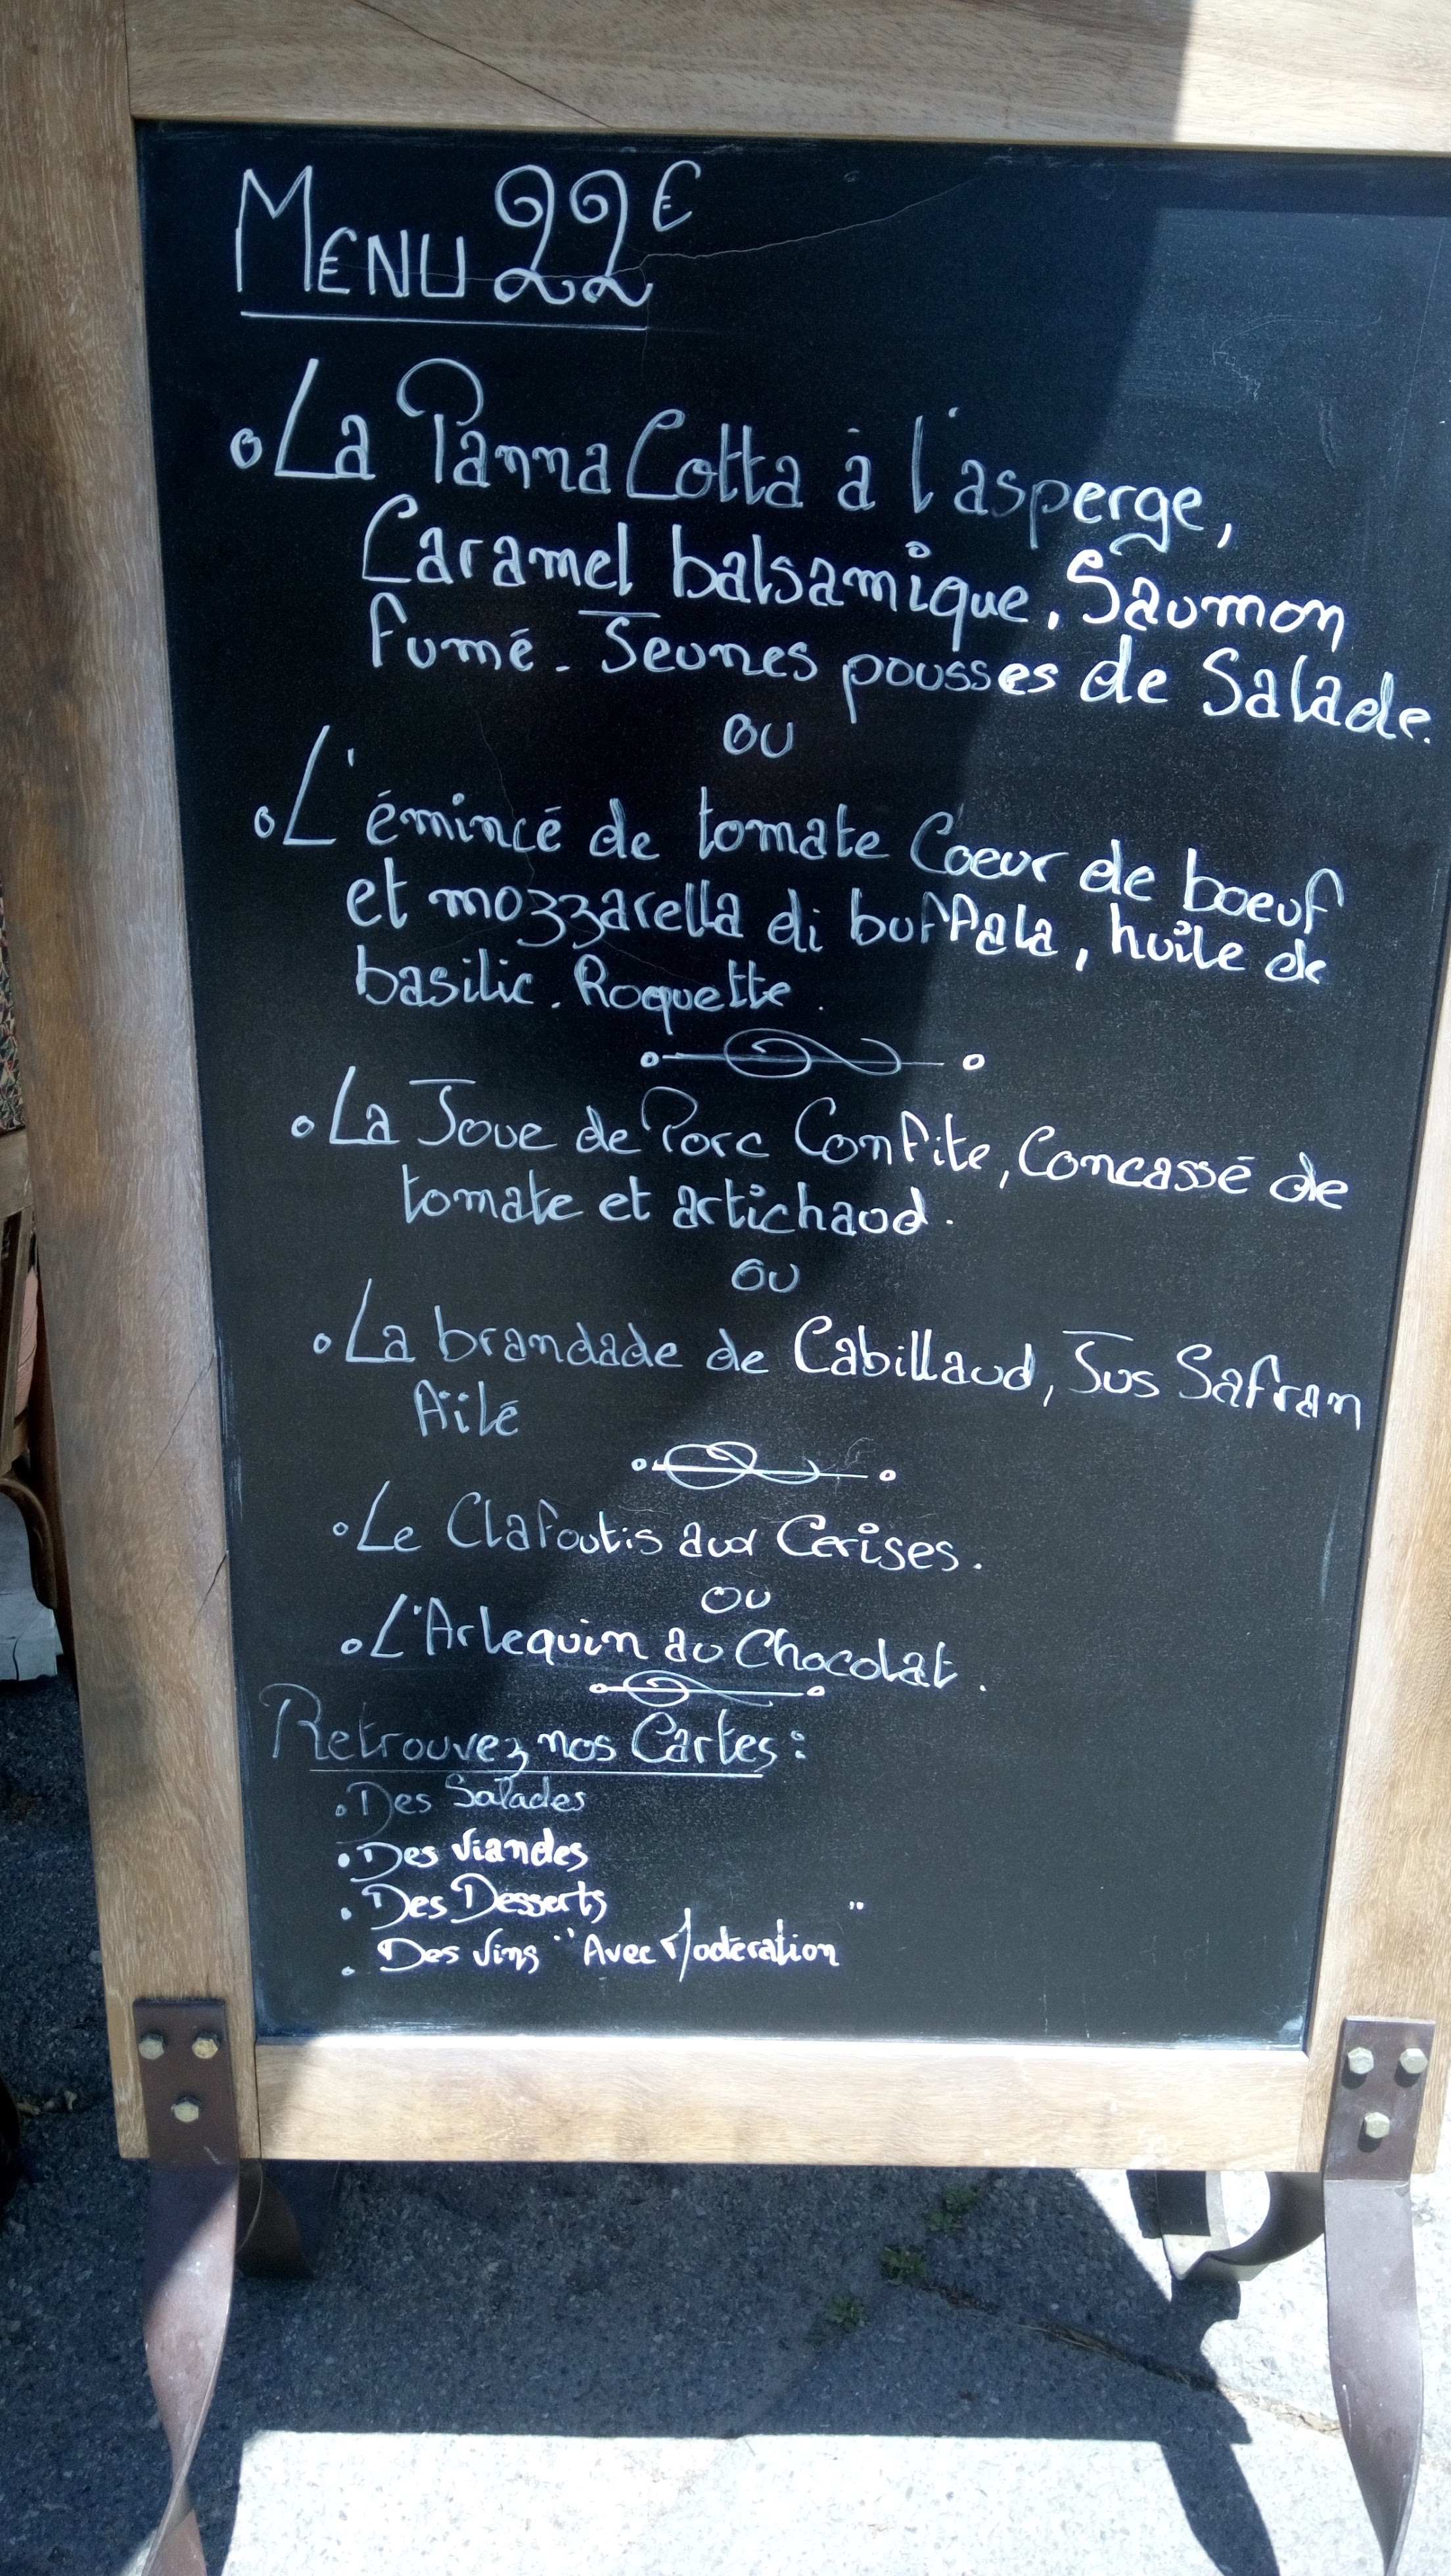 MENU 22€
La Panna Cotta à l'asperge,
Caramel balsamique, Saumon
fumé. Jeunes pousses de Salade.
ou
L'émincé de tomate Coeur de boeuf
et mozzarella di buffala, huile de
basilic. Roquette.
La Joue de Porc Confite, Concassé de
tomate et artichaud.
ou
La brandade de Cabillaud, Jus Safran
Aïlé
Le Clafoutis aux Cerises.
ou
L'Arlequin au Chocolat.
Retrouvez nos Cartes :
. Des Salades
. Des Viandes
. Des Desserts
. Des Vins "Avec Modération"